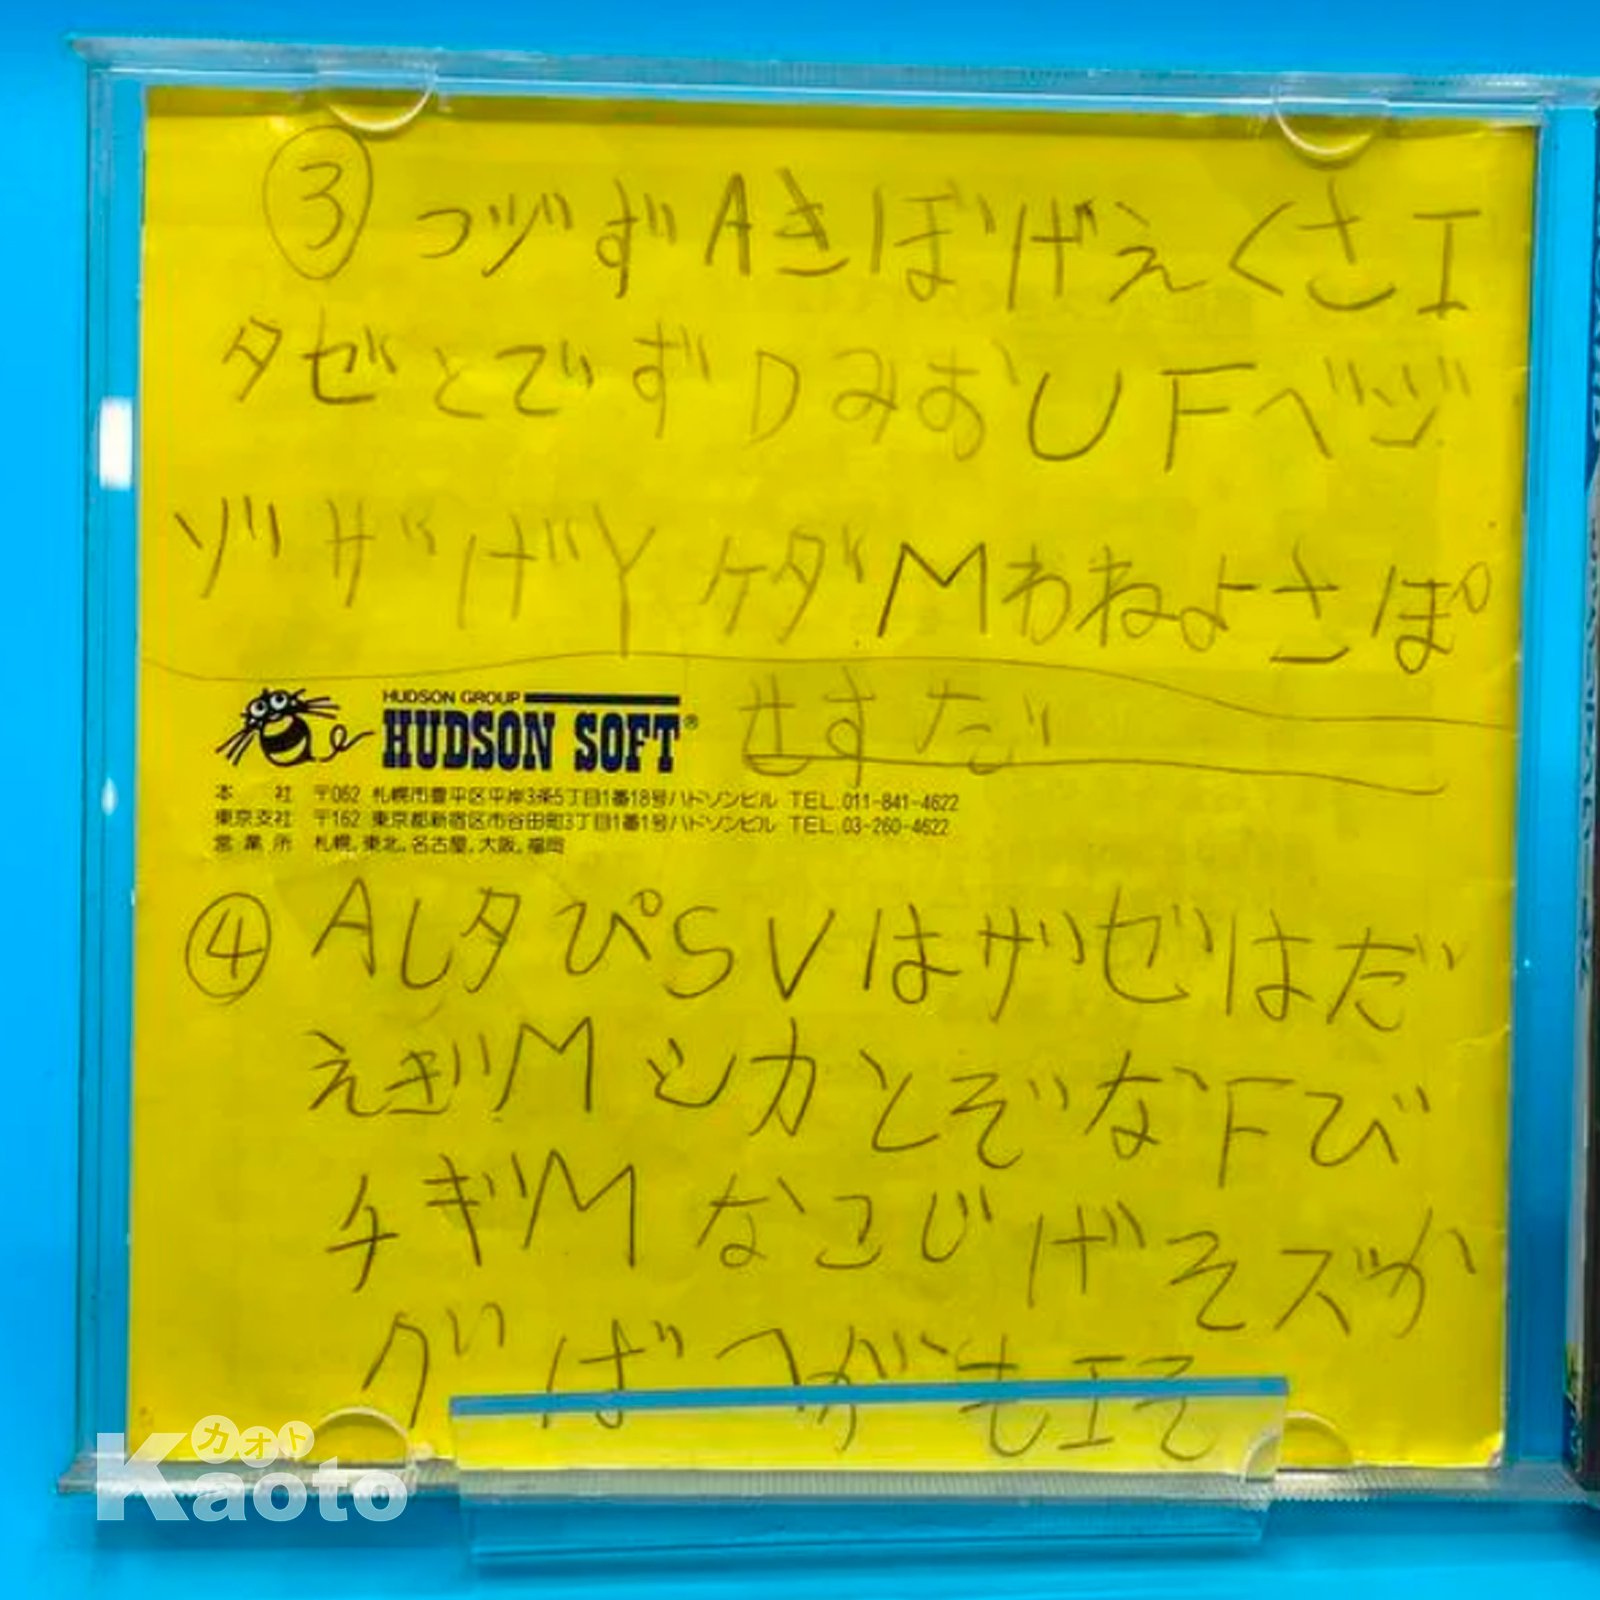 ③ つヅずAきぼげえくさI
タゼとでずDみおUFべジ
ゾザげYケダMわねよさぽ
せすだ
HUDSON GROUP
HUDSON SOFT®
本 社 〒062 札幌市豊平区平岸3条5丁目1番18号ハドソンビル TEL.011-841-4622
東京支社 〒162 東京都新宿区市谷田町3丁目1番1号ハドソンビル TEL.03-260-4622
営業所 札幌、東北、名古屋、大阪、福岡
④ ALタぴSVはザゼはだ
えぎMシカとぞなFび
チギMなこじげそズか
グばへがもIそ
カオト
Kaoto